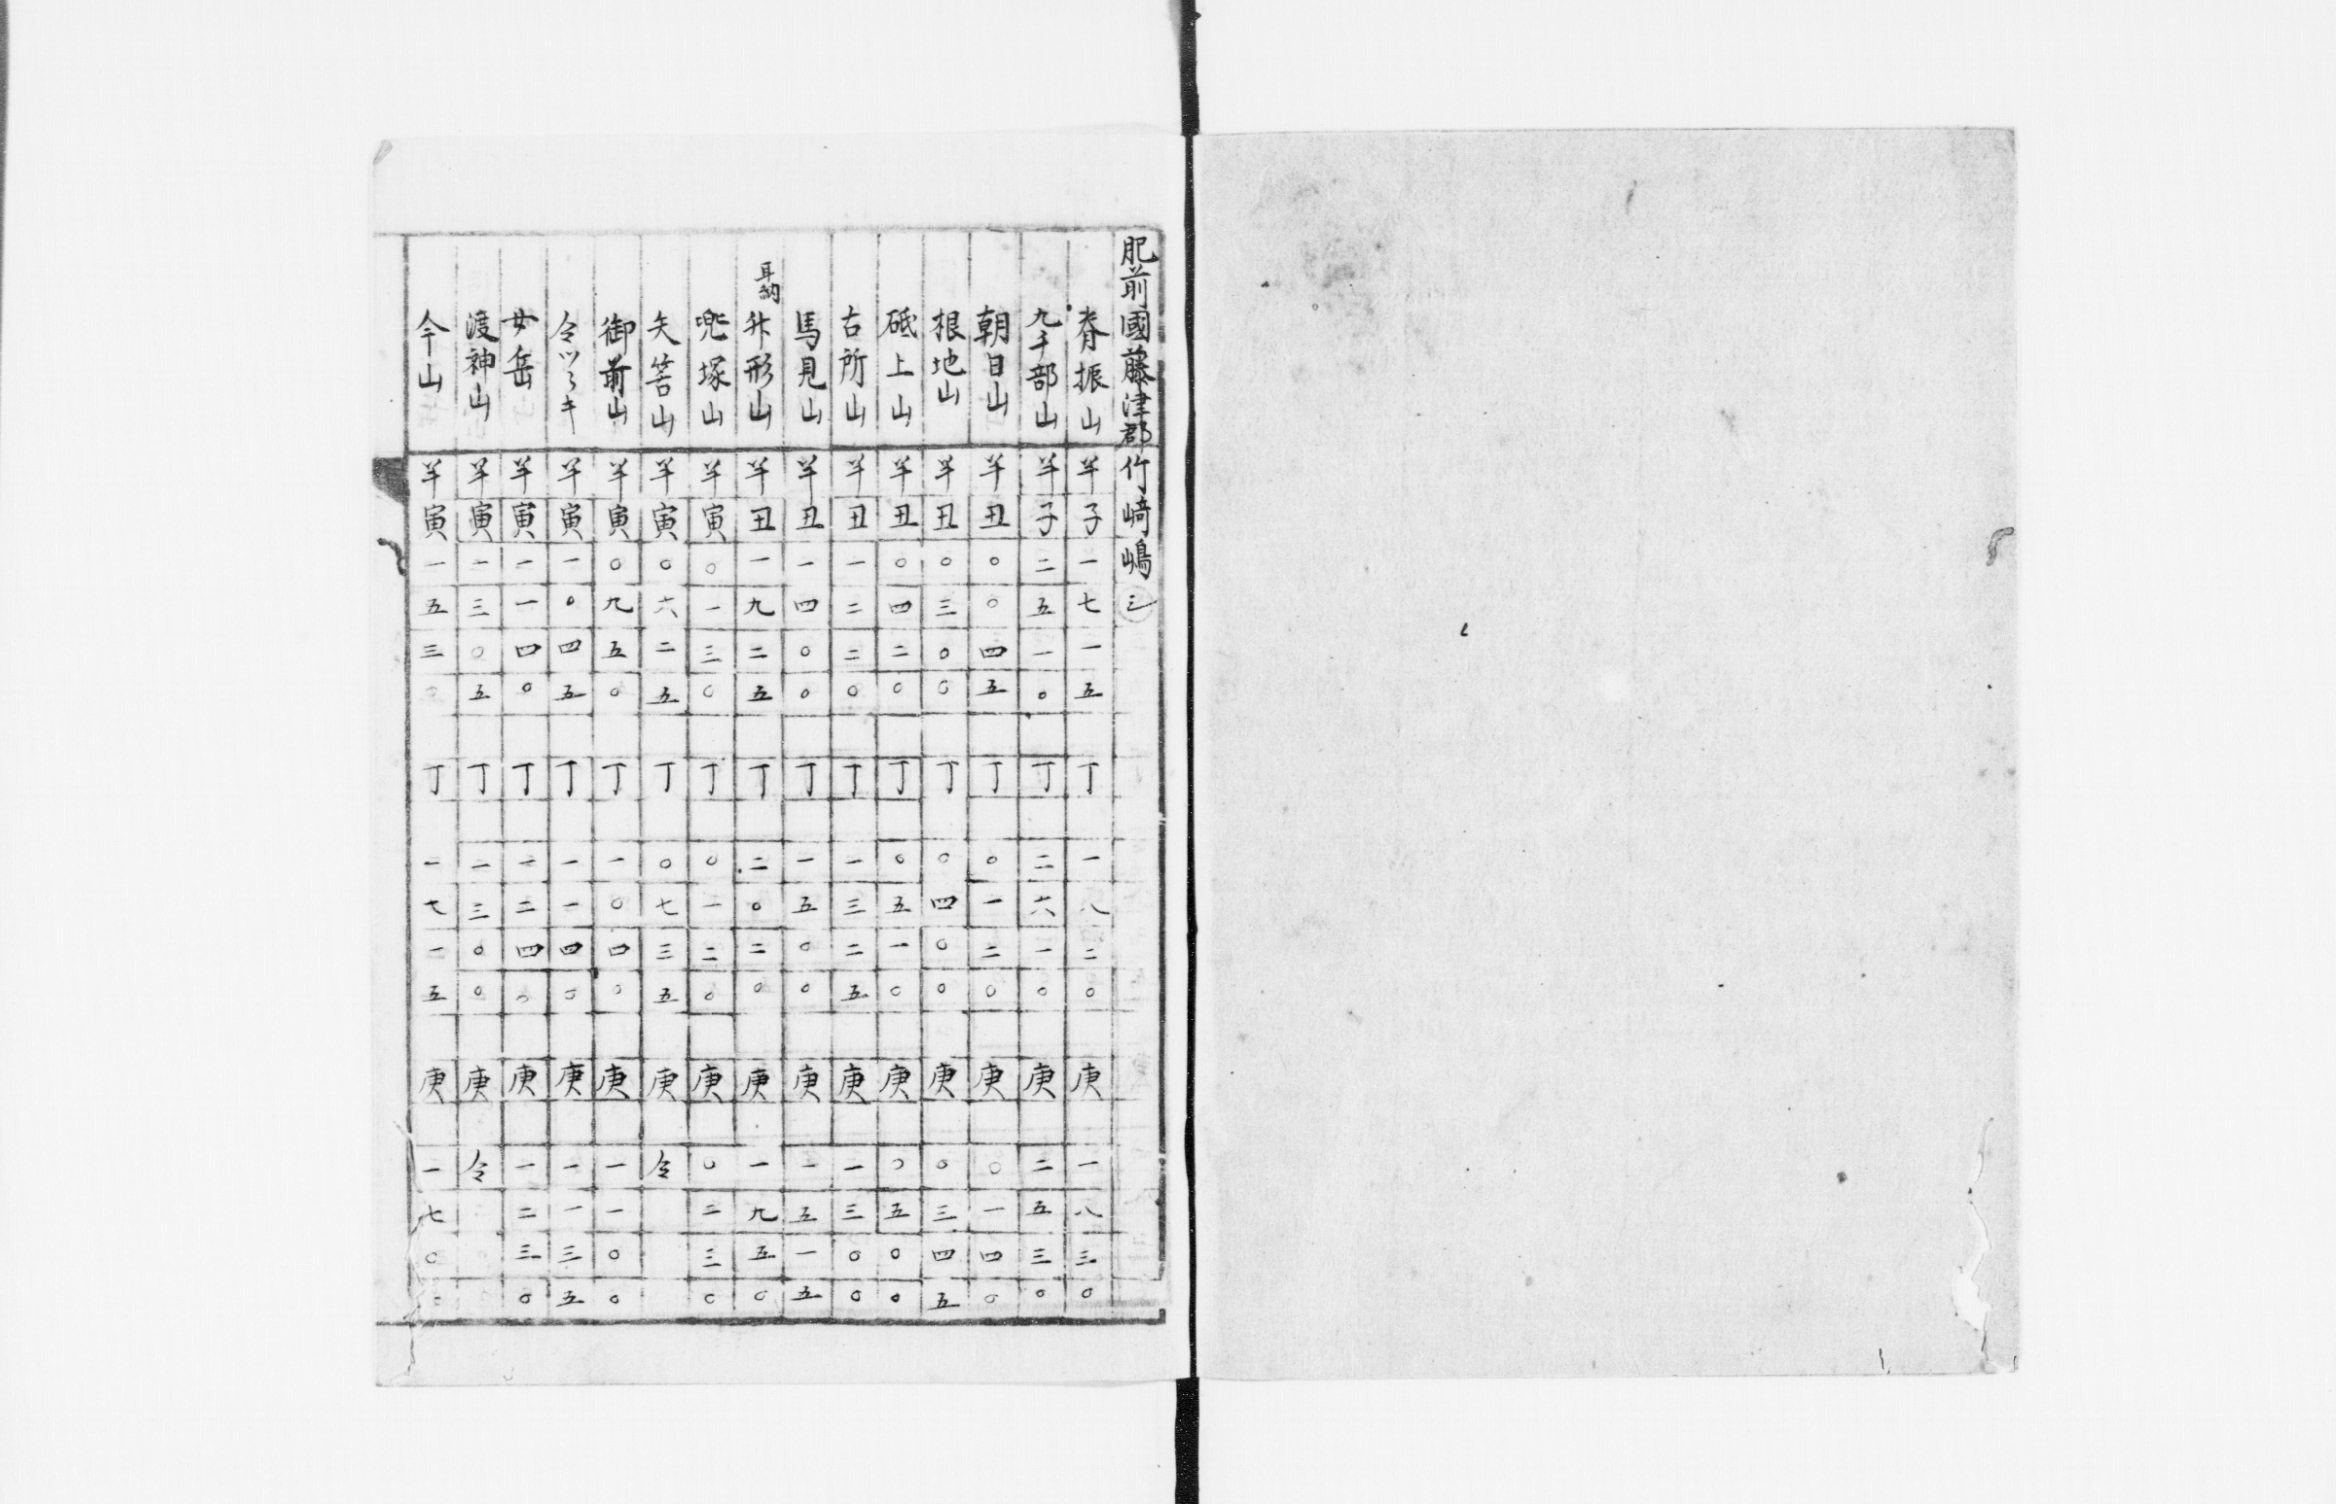 肥前國藤津郡竹﨑嶋
脊振山 羊子一七一五 丁一八二〇 庚一八三〇
九千部山 羊子二五一〇 丁二六一〇 庚二五三〇
朝日山 羊丑〇〇四五 丁〇一二〇 庚〇一四〇
根地山 羊丑〇三〇〇 丁〇四〇〇 庚〇三四五
砥上山 羊丑〇四二〇 丁〇五一〇 庚〇五〇〇
古所山 羊丑一二二〇 丁一三二五 庚一三〇〇
馬見山 羊丑一四〇〇 丁一五〇〇 庚一五一五
耳納
舛形山 羊丑一九二五 丁二〇二〇 庚一九五〇
兜塚山 羊寅〇一三〇 丁〇一二〇 庚〇二三〇
矢筈山 羊寅〇六二五 丁〇七三五 庚仝
御前山 羊寅〇九五〇 丁一〇四〇 庚一一〇〇
仝ツヽキ 羊寅一〇四五 丁一一四〇 庚一一三五
女岳 羊寅一一四〇 丁一二四〇 庚一二三〇
渡神山 羊寅一三〇五 丁一三〇〇 庚仝
今山 羊寅一五三〇 丁一七一五 庚一七〇